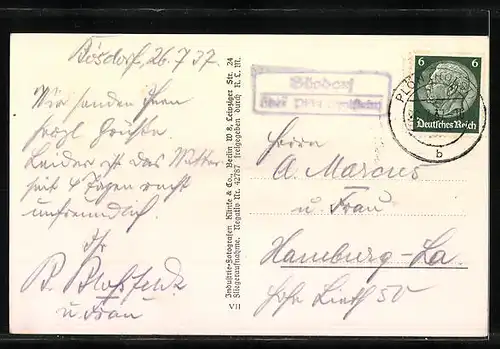 Bösdorf, 26.7.37.
Wir senden Ihnen
frohl. Grüße.
Leider ist das Wetter
seit 4 Tagen recht
unfreundlich.
Ihr
B. Bloßfeldt
u. Frau
Industrie-Fotografen Klinke & Co., Berlin W 8, Leipziger Str. 24
Fliegeraufnahme. Negativ Nr. 42787 freigegeben durch R.L.M.
VII
Bösdorf
über Plön (Holstein)
6 6
Deutsches Reich
PLÖN
b
Herrn
A. Marcus
u. Frau
Hamburg-La.
50